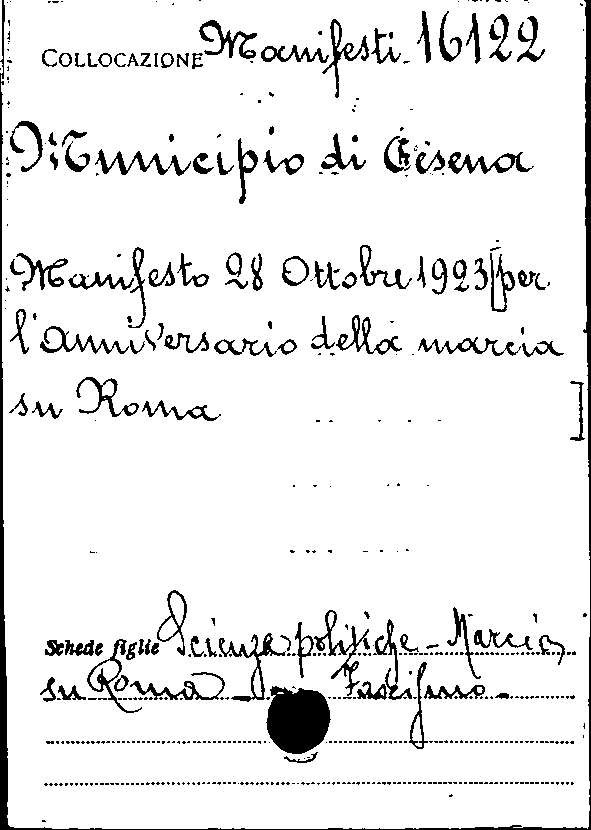 COLLOCAZIONE Manifesti 16122
Municipio di Cesena
Manifesto 28 Ottobre 1923 [per
l'anniversario della marcia
su Roma ]
Schede figlie Scienze politiche - Marcia
su Roma - Fascismo -